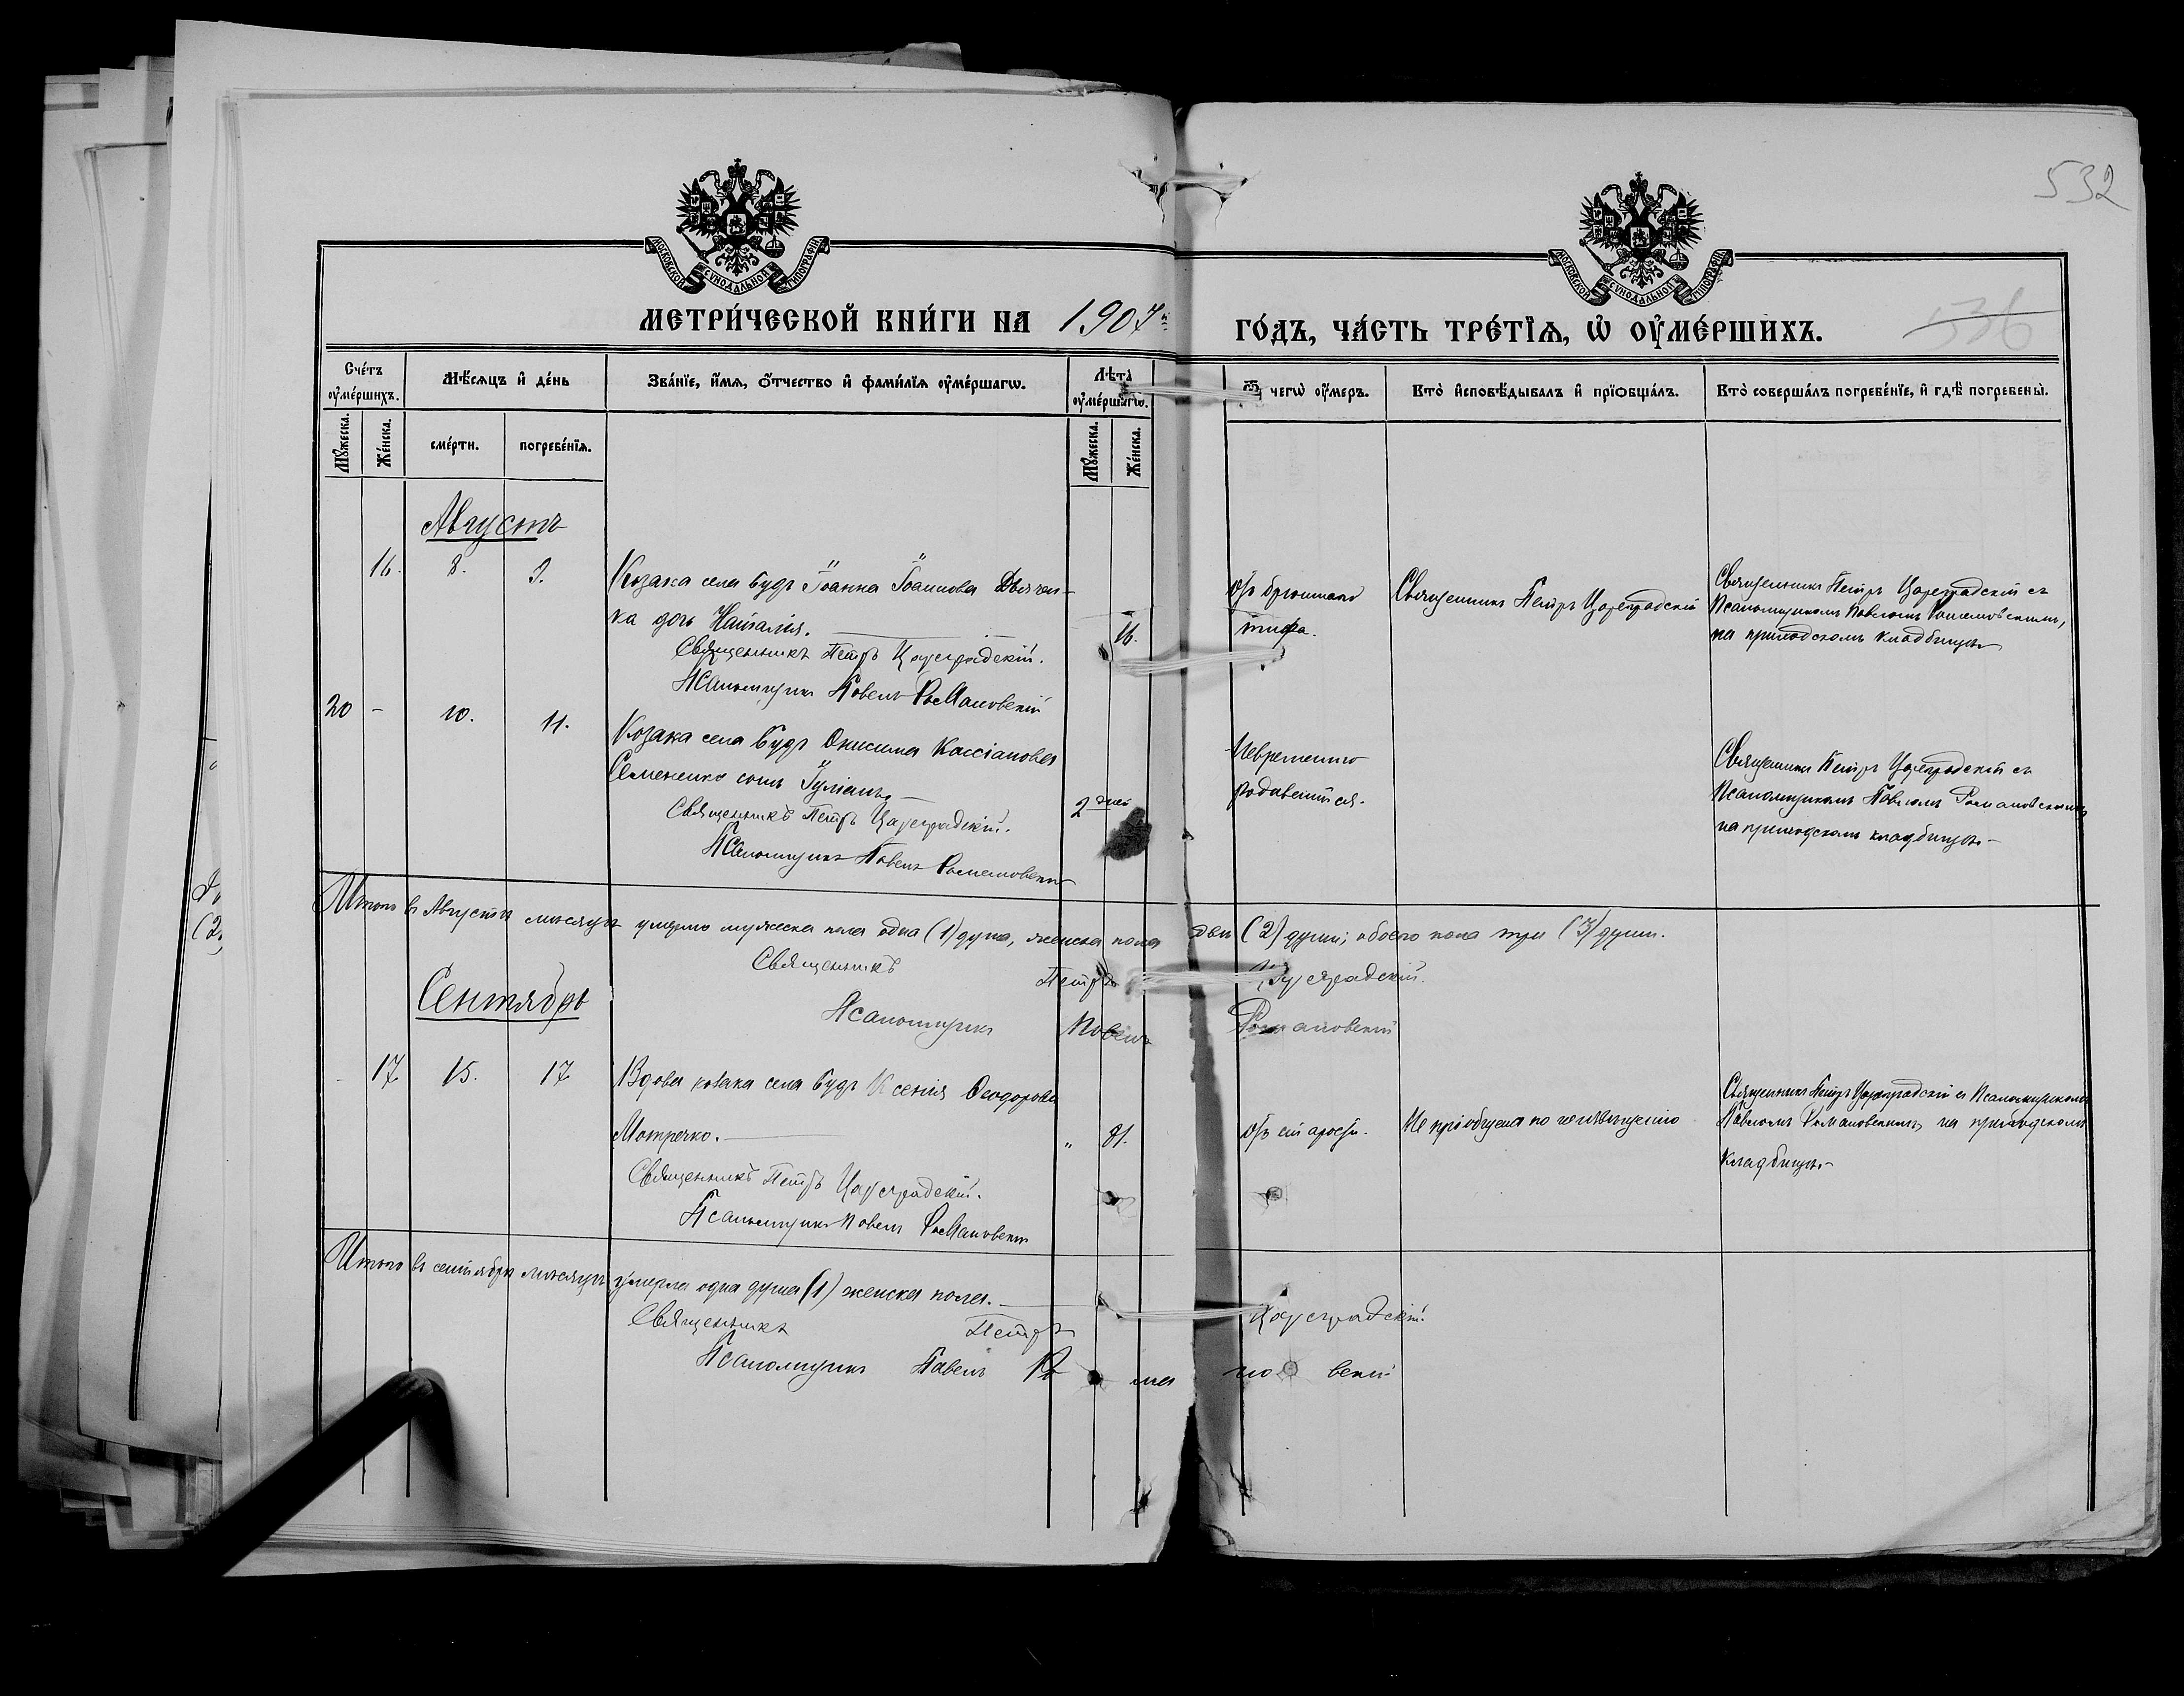 532
МОСКОВСКОЙ СѴНОДАЛЬНОЙ ТИПОГРАФІИ
МОСКОВСКОЙ СѴНОДАЛЬНОЙ ТИПОГРАФІИ
МЕТРИ́ЧЕСКОЙ КНИ́ГИ НА 1907 ГО́ДЪ, ЧА́СТЬ ТРЕ́ТЇѦ, Ѡ ОУМЕ́РШИХЪ.
536
Сче́тъ оуме́ршихъ.
Мѣ́сяцъ и де́нь
Зва́нїе, и́мѧ, о́тчество и фами́лїѧ оуме́ршагѡ.
Лѣ́та оуме́ршагѡ.
Ѿ чегѡ̀ оу́меръ.
Кто̀ исповѣ́дывалъ и прїѡбща́лъ.
Кто̀ соверша́лъ погребе́нїе, и гдѣ̀ погребены̀.
Му́жеска.
Же́нска.
сме́рти.
погребе́нїѧ.
Му́жеска.
Же́нска.
Августъ
16. 8. 9. Козака села Будъ Іоанна Іоаннова Дьячен-
ка дочь Наталія. 16.
Священникъ Петръ Цареградскій.
Псаломщикъ Павелъ Романовскій
Отъ брюшнаго
тифа.
Священникъ Петръ Цареградскій
Священникъ Петръ Цареградскій съ
Псаломщикомъ Павломъ Романовскимъ,
на приходскомъ кладбищѣ
20 - 10. 11. Козака села Будъ Онисима Кассіанова
Семененко сынъ Іуліанъ. 2 дней
Священникъ Петръ Цареградскій.
Псаломщикъ Павелъ Романовскій
Невременно
родившійся.
Священникъ Петръ Цареградскій съ
Псаломщикомъ Павломъ Романовскимъ
на приходскомъ кладбищѣ.
Итого въ Августѣ мѣсяцѣ умерло мужеска пола одна (1) душа, женска пола двѣ (2) души; обоего пола три (3) души.
Священникъ Петръ Цареградскій.
Псаломщикъ Павелъ Романовскій
Сентябрь
- 17. 15. 17. Вдова козака села Будъ Ксенія Ѳеодорова
Мотречко. „ 81.
Священникъ Петръ Цареградскій.
Псаломщикъ Павелъ Романовскій
Отъ старости.
Не пріобщена по неизвѣщенію
Священникъ Петръ Цареградскій съ Псаломщикомъ
Павломъ Романовскимъ, на приходскомъ
кладбищѣ.
Итого въ сентябрѣ мѣсяцѣ умерла одна душа (1) женска пола.
Священникъ Петръ Цареградскій.
Псаломщикъ Павелъ Романовскій